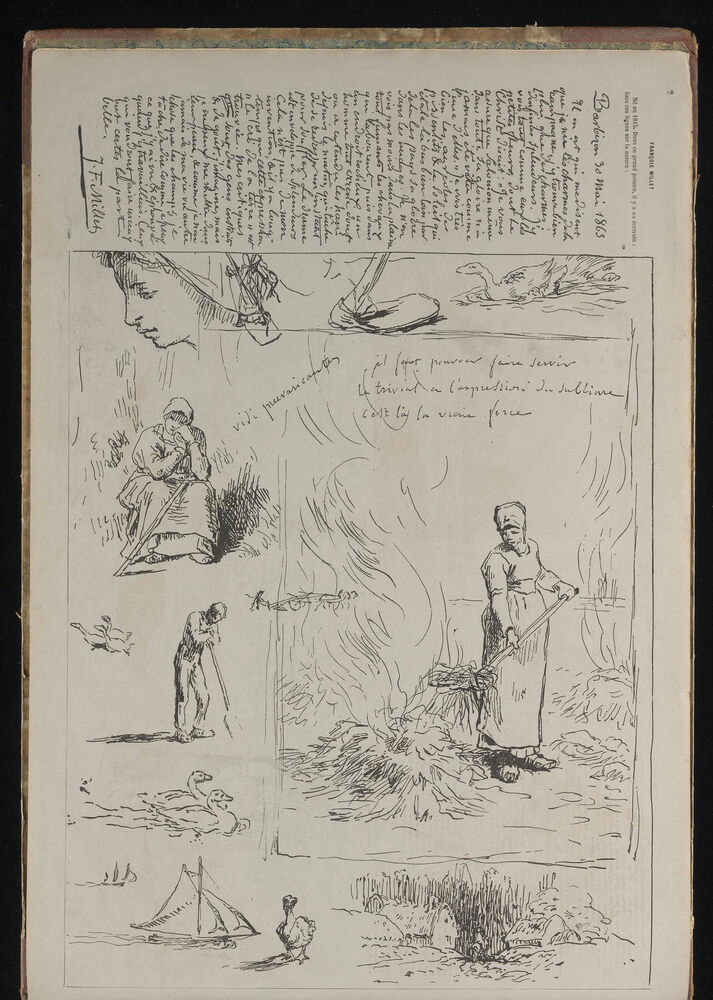 2
FRANÇOIS MILLET
Né en 1815. Dans ce grand peintre, il y a un écrivain :
lisez ces lignes sur la nature :
Barbizon 30 Mai 1863
Il en est qui me disent
que je nie les charmes de la
campagne; j'y trouve bien
plus que des charmes:
d'infinies splendeurs. J'y
vois tout comme eux les
petites fleurs dont le
Christ disait: « Je vous
assure que Salomon même
dans toute sa gloire n'a
jamais été vêtu comme
l'une d'elles. » Je vois très
bien les auréoles des
pissenlits, et le soleil qui
étale là-bas bien loin par
delà les pays sa gloire
dans les nuages. Je n'en
vois pas moins dans la plaine
tout fumants les chevaux
qui labourent, puis dans
un endroit rocheux un
homme tout errené dont
on a entendu les han!
depuis le matin, qui tâche
de se redresser un instant
pour souffler. Le drame
est enveloppé de splendeurs
Cela n'est pas de mon
invention, et il y a long-
temps que cette expression
« le cri de la terre » est
trouvée. Mes critiques
sont des gens instruits
& de goût, j'imagine, mais
je ne peux me mettre dans
leur peau, & comme je n'ai
jamais de ma vie vu autre
chose que les champs, je
tâche de dire comme je peux
ce que j'y ai vu et éprouvé
quand j'y travaillais. Ceux
qui voudront faire mieux
ont certes la part
belle.
J. F. Millet
il faut pouvoir faire servir
le trivial a l'expression du sublime
c'est là la vraie force
vidi praevaricantes